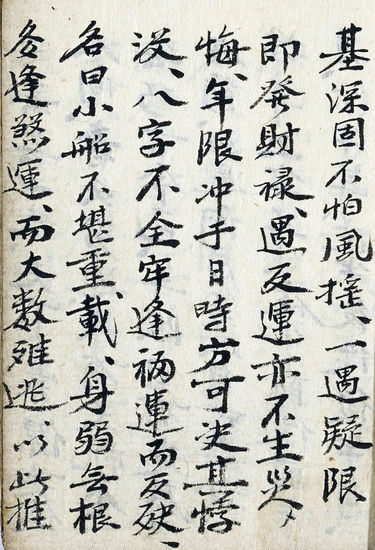 基深固不怕風搖、一遇疑限
即發財禄、遇反運亦不生災、
悔、年限冲于日時方可决其悖
没、八字不全牢逢禍運而反
名曰小船不堪重載、身弱無根
多逢煞運、而大数难逃、以此推